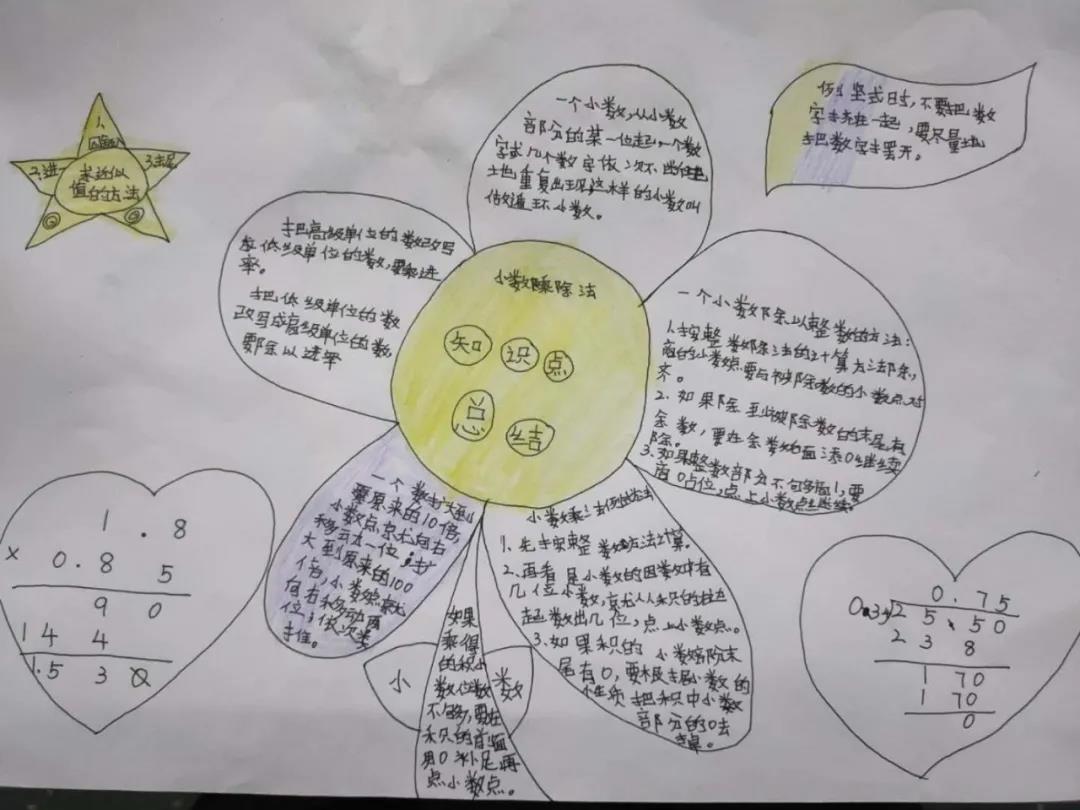 求近似
值的方法
2.进一
3.去尾
例如竖式时,不要把数
字挤在一起,要尽量地
把数字摆开。
一个小数,从小数
部分的某一位起,一个数
字或几个数字依次不断地
重复出现,这样的小数叫
做循环小数。
把高级单位的数改写
成低级单位的数,要乘进
率。
把低级单位的数
改写成高级单位的数,
要除以进率
小数乘除法
知识点
总结
一个小数除以整数的方法:
1.按整数除法的计算方法除,
商的小数点要与被除数的小数点对
齐。
2.如果除到被除数的末尾有
余数,要在余数后面添0继续
除。
3.如果整数部分不够商1,要
商0占位,点上小数点继续
一个数扩大到
原来的10倍,
小数点就向右
移动一位;扩
大到原来的100
倍,小数点就
向右移动两
位;依次类
推。
小数乘法的
1.先按整数的方法计算。
2.再看是小数的因数中有
几位小数,就从积的右边
起数出几位,点上小数点。
3.如果积的小数部分末
尾有0,要根据小数的
性质把积中小数
部分的0去
掉。
如果
乘得
的积小
数位数
不够,要在
积的前面
用0补足再
点小数点。
小 数
1.8
× 0.8 5
9 0
1 4 4
1.5 3 0
0.75
2 5.50
2 3 8
1 70
1 70
0